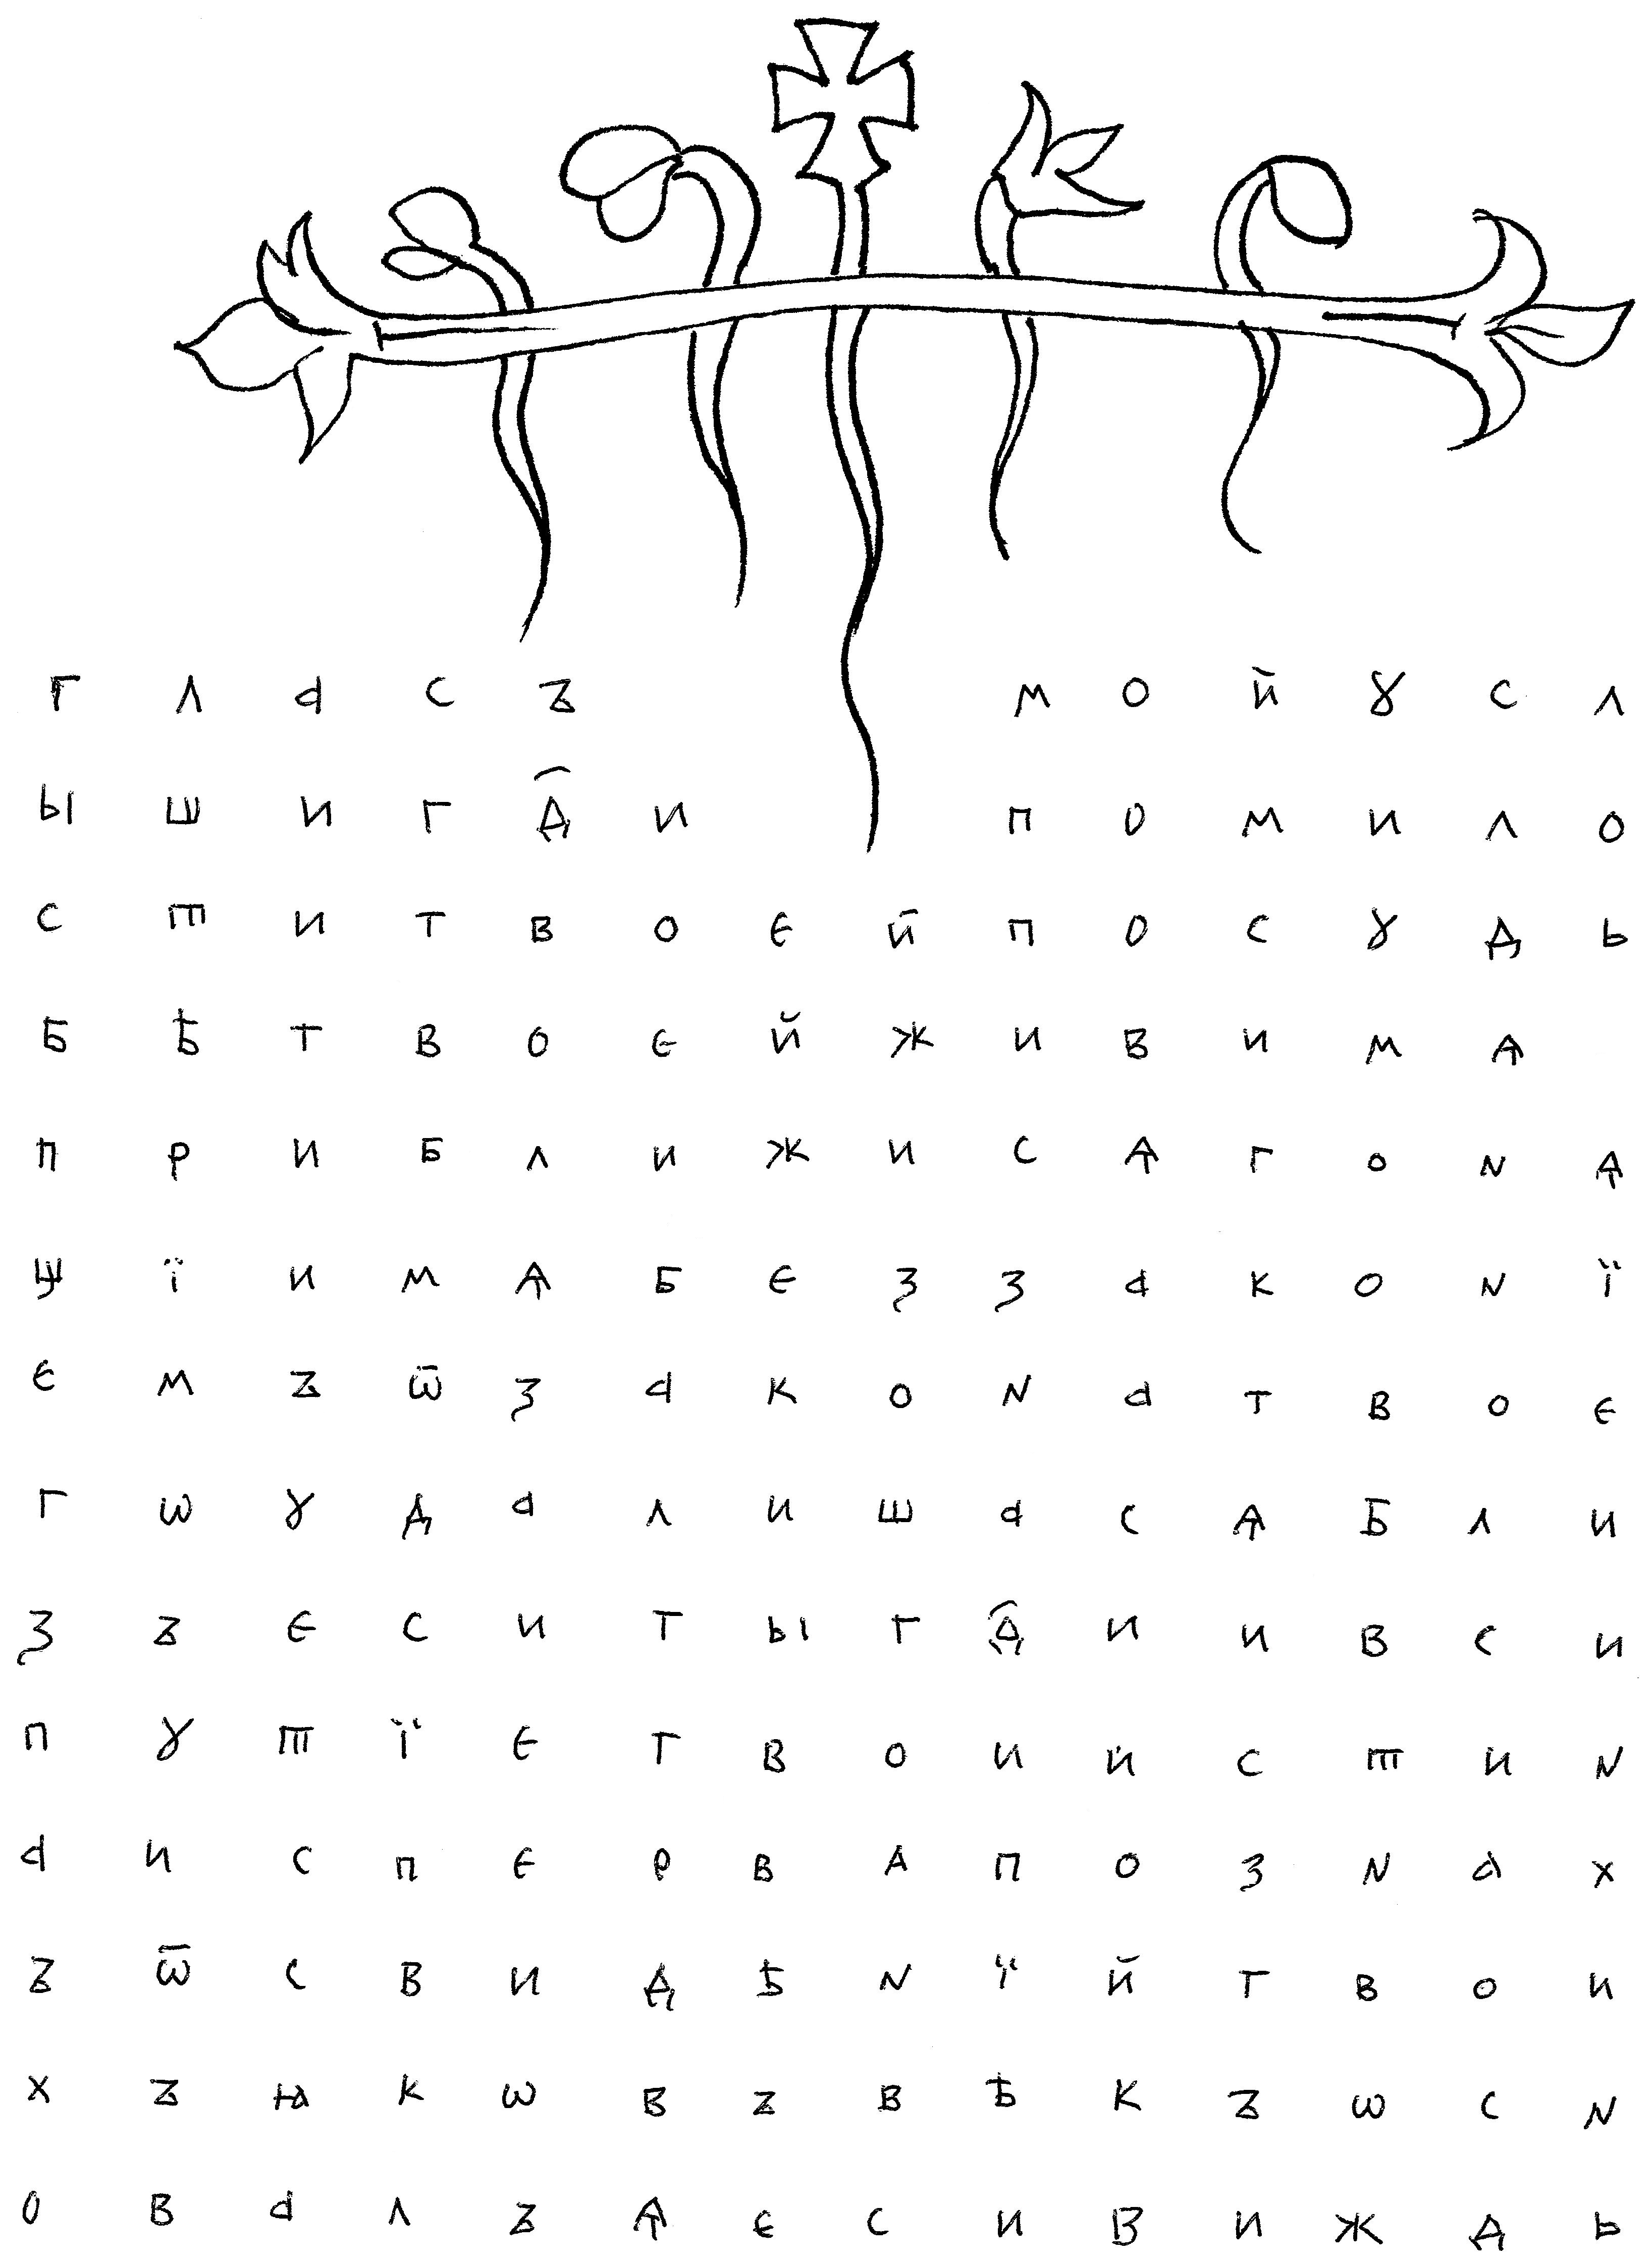 г л а с ъ м о й ꙋ с л
ы ш и г д҃ и п о м и л о
с т и т в о є й п о с ꙋ д ь
б ѣ т в о є й ж и в и м ѧ
п р и б л и ж и с ѧ г о н ѧ
щ ї и м ѧ б є ꙁ ꙁ а к о н ї
є м ъ ѿ ꙁ а к о н а т в о є
г ѡ ꙋ д а л и ш а с ѧ б л и
ꙁ ъ є с и т ы г д҃ и и в с и
п ꙋ т ї є т в о и и с т и н
а и с п є р в а п о ꙁ н а х
ъ ѿ с в и д ѣ н ї й т в о и
х ъ ꙗ к ѡ в ъ в ѣ к ъ ѡ с н
о в а л ъ ѧ є с и в и ж д ь